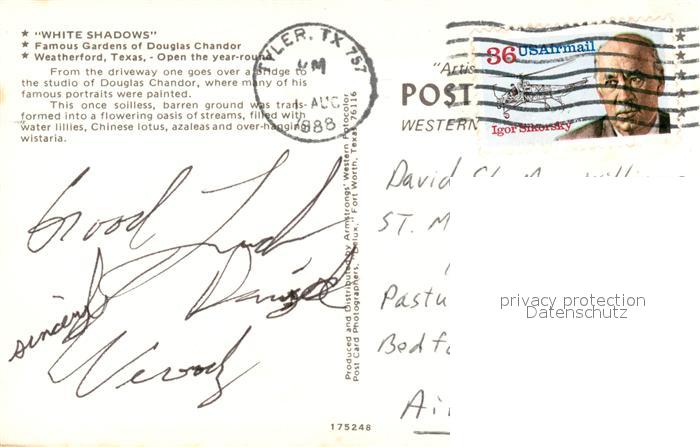 ★ "WHITE SHADOWS"
★ Famous Gardens of Douglas Chandor
★ Weatherford, Texas, - Open the year-round
From the driveway one goes over a bridge to
the studio of Douglas Chandor, where many of his
famous portraits were painted.
This once soilless, barren ground was trans-
formed into a flowering oasis of streams, filled with
water lillies, Chinese lotus, azaleas and over-hanging
wistaria.
TYLER, TX 757
PM
AUG
1988
36 USAirmail
Igor Sikorsky
"Artis
POST
WESTERN
Good Luck
David
sincerely
Woody
Produced and Distributed by Armstrongs' Western Fotocolor
Post Card Photographers, "Delux," Fort Worth, Texas 76116
David
ST. M
Pastu
Bedfo
Ai
privacy protection
Datenschutz
175248